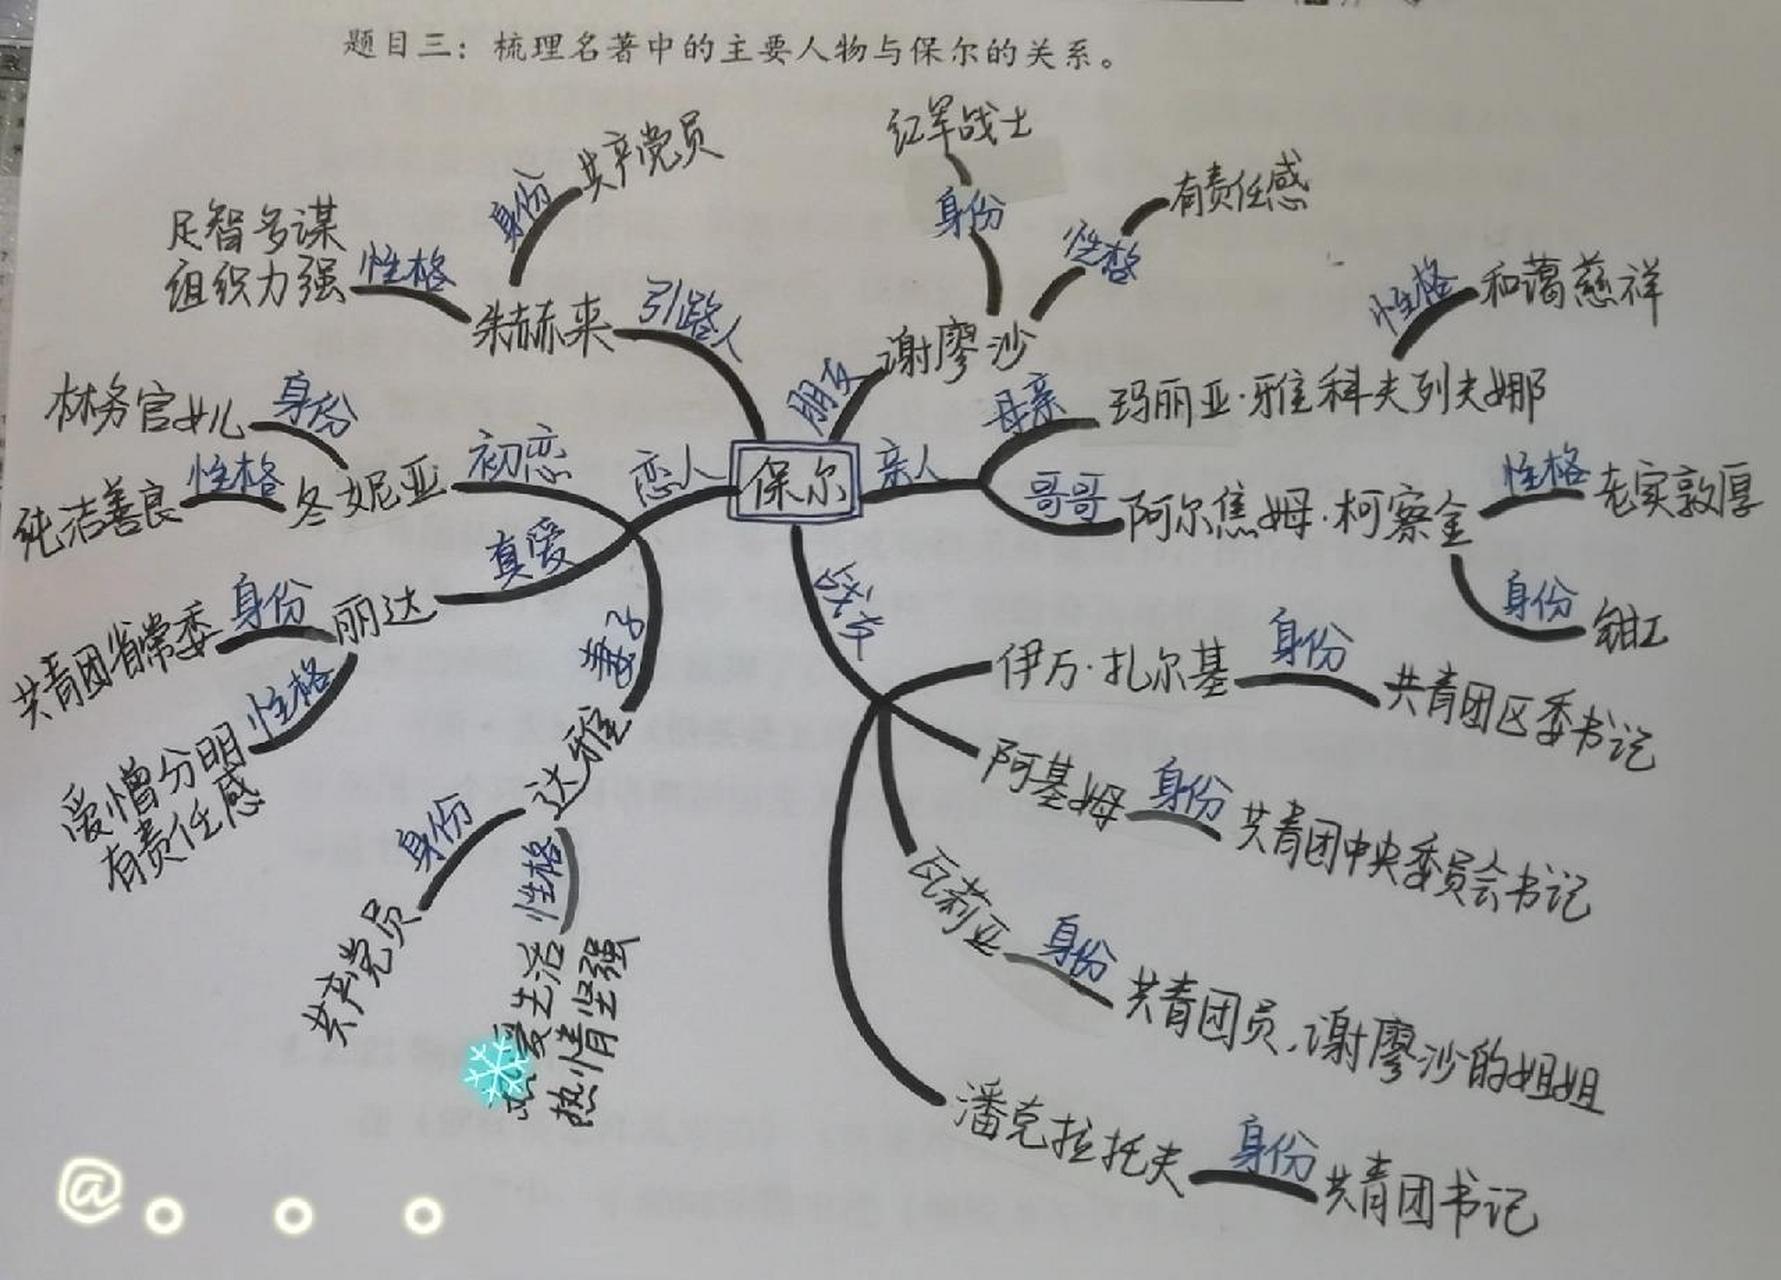 题目三：梳理名著中的主要人物与保尔的关系。
保尔
引路人
朱赫来
身份
共产党员
性格
足智多谋
组织力强
朋友
谢廖沙
身份
红军战士
性格
有责任感
亲人
母亲
玛丽亚·雅科夫列夫娜
性格
和蔼慈祥
哥哥
阿尔焦姆·柯察金
性格
老实敦厚
身份
钳工
恋人
初恋
冬妮亚
身份
林务官女儿
性格
纯洁善良
真爱
丽达
身份
共青团省常委
性格
爱憎分明
有责任感
妻子
达雅
身份
共产党员
性格
爱生活
热情坚强
战友
伊万·扎尔基
身份
共青团区委书记
阿基姆
身份
共青团中央委员会书记
瓦莉亚
身份
共青团员，谢廖沙的姐姐
潘克拉托夫
身份
共青团书记
@。。。